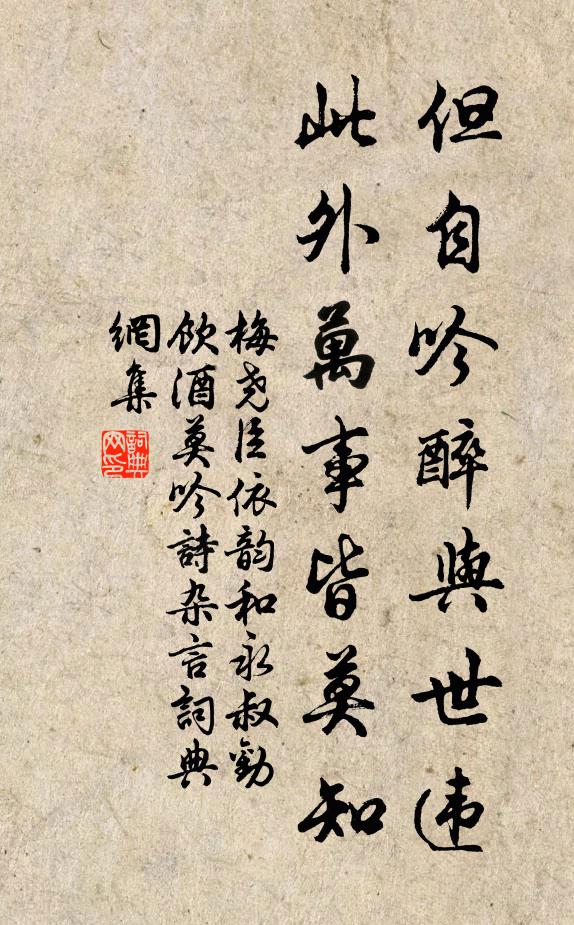 但自吟醉與世违
此外萬事皆莫知
梅尧臣依韵和永叔勸
飲酒莫吟詩杂言詞典
網集
詞典
网印